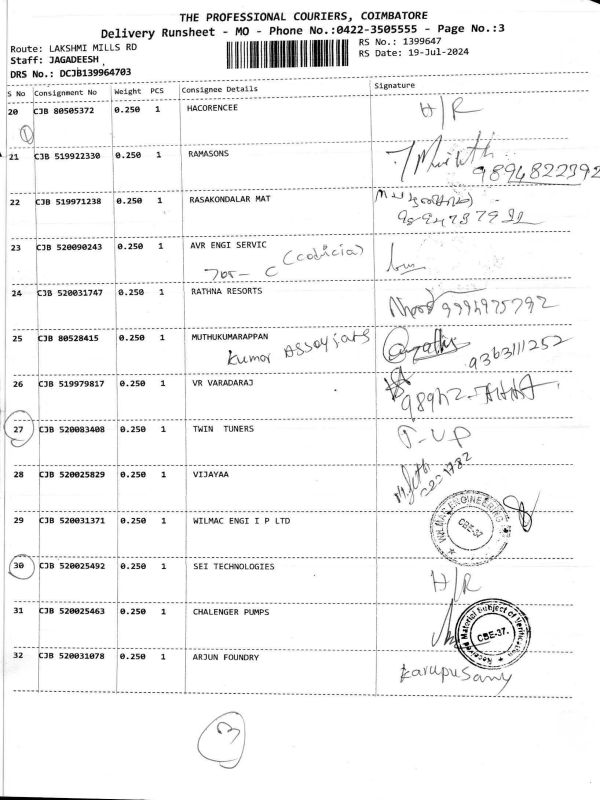 THE PROFESSIONAL COURIERS, COIMBATORE
Delivery Runsheet - MO - Phone No.:0422-3505555 - Page No.:3
Route: LAKSHMI MILLS RD
RS No.: 1399647
Staff: JAGADEESH
RS Date: 19-Jul-2024
DRS No.: DCJB139964703
S No Consignment No Weight PCS Consignee Details Signature
20 CJB 80505372 0.250 1 HACORENCEE H/R
1
21 CJB 519922330 0.250 1 RAMASONS
9894822392
22 CJB 519971238 0.250 1 RASAKONDALAR MAT
23 CJB 520090243 0.250 1 AVR ENGI SERVIC
(codicia)
24 CJB 520031747 0.250 1 RATHNA RESORTS
9994975792
25 CJB 80528415 0.250 1 MUTHUKUMARAPPAN
Kumar 9363111252
26 CJB 519979817 0.250 1 VR VARADARAJ
27 CJB 520083408 0.250 1 TWIN TUNERS
28 CJB 520025829 0.250 1 VIJAYAA
29 CJB 520031371 0.250 1 WILMAC ENGI I P LTD
CBE-37
30 CJB 520025492 0.250 1 SEI TECHNOLOGIES H/R
31 CJB 520025463 0.250 1 CHALENGER PUMPS
Received Material Subject of Verification
CBE-37.
32 CJB 520031078 0.250 1 ARJUN FOUNDRY
Karupusamy
3